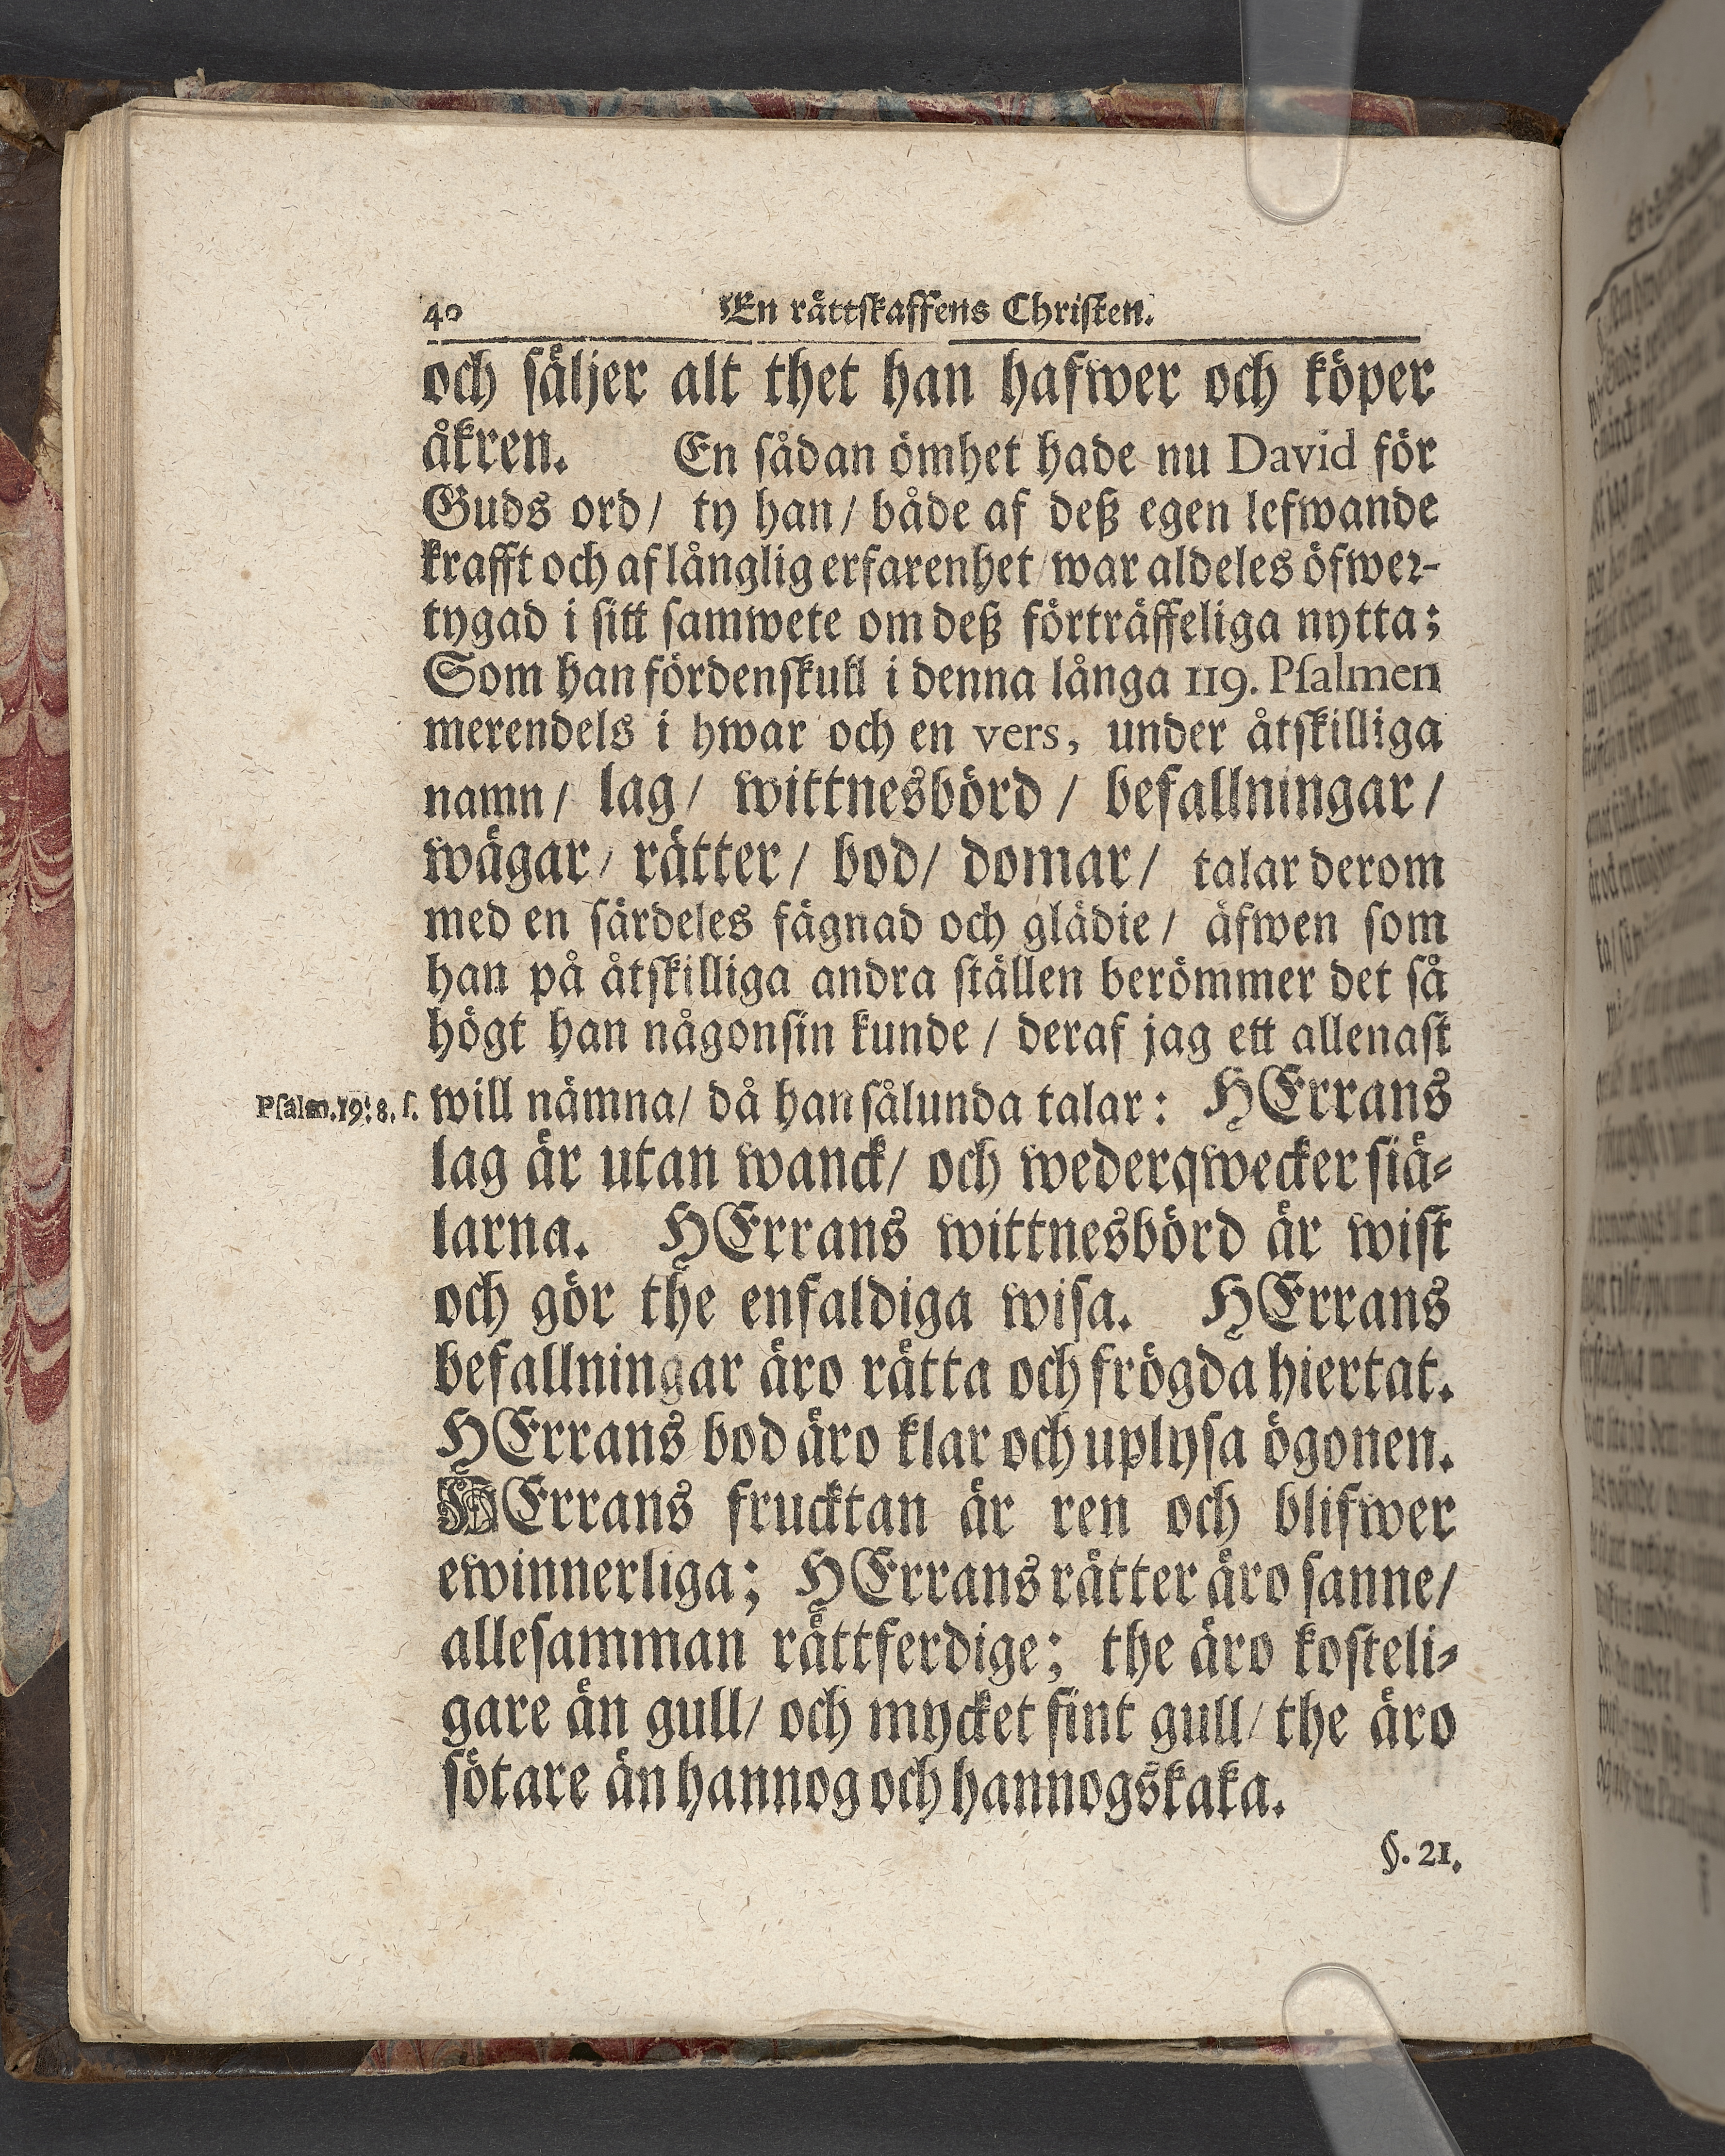 40 En rättskaffens Christen.
och säljer alt thet han hafwer och köper
åkren. En sådan ömhet hade nu David för
Guds ord/ ty han/ både af deß egen lefwande
krafft och af långlig erfarenhet/ war aldeles öfwer-
tygad i sitt samwete om deß förträffeliga nytta;
Som han fördenskull i denna långa 119. Psalmen
merendels i hwar och en vers, under åtskilliga
namn/ lag/ wittnesbörd/ befallningar/
wägar/ rätter/ bod/ domar/ talar derom
med en särdeles fägnad och glädie/ äfwen som
han på åtskilliga andra ställen berömmer det så
högt han någonsin kunde/ deraf jag ett allenast
Psalm.19:8. s. will nämna/ då han sålunda talar: HErrans
lag är utan wanck/ och wederqwecker siä-
larna. HErrans wittnesbörd är wist
och gör the enfaldiga wisa. HErrans
befallningar äro rätta och frögda hiertat.
HErrans bod äro klar och uplysa ögonen.
HErrans frucktan är ren och blifwer
ewinnerliga; HErrans rätter äro sanne/
allesamman rättferdige; the äro kosteli-
gare än gull/ och mycket fint gull/ the äro
sötare än hannog och hannogskaka.
§. 21.